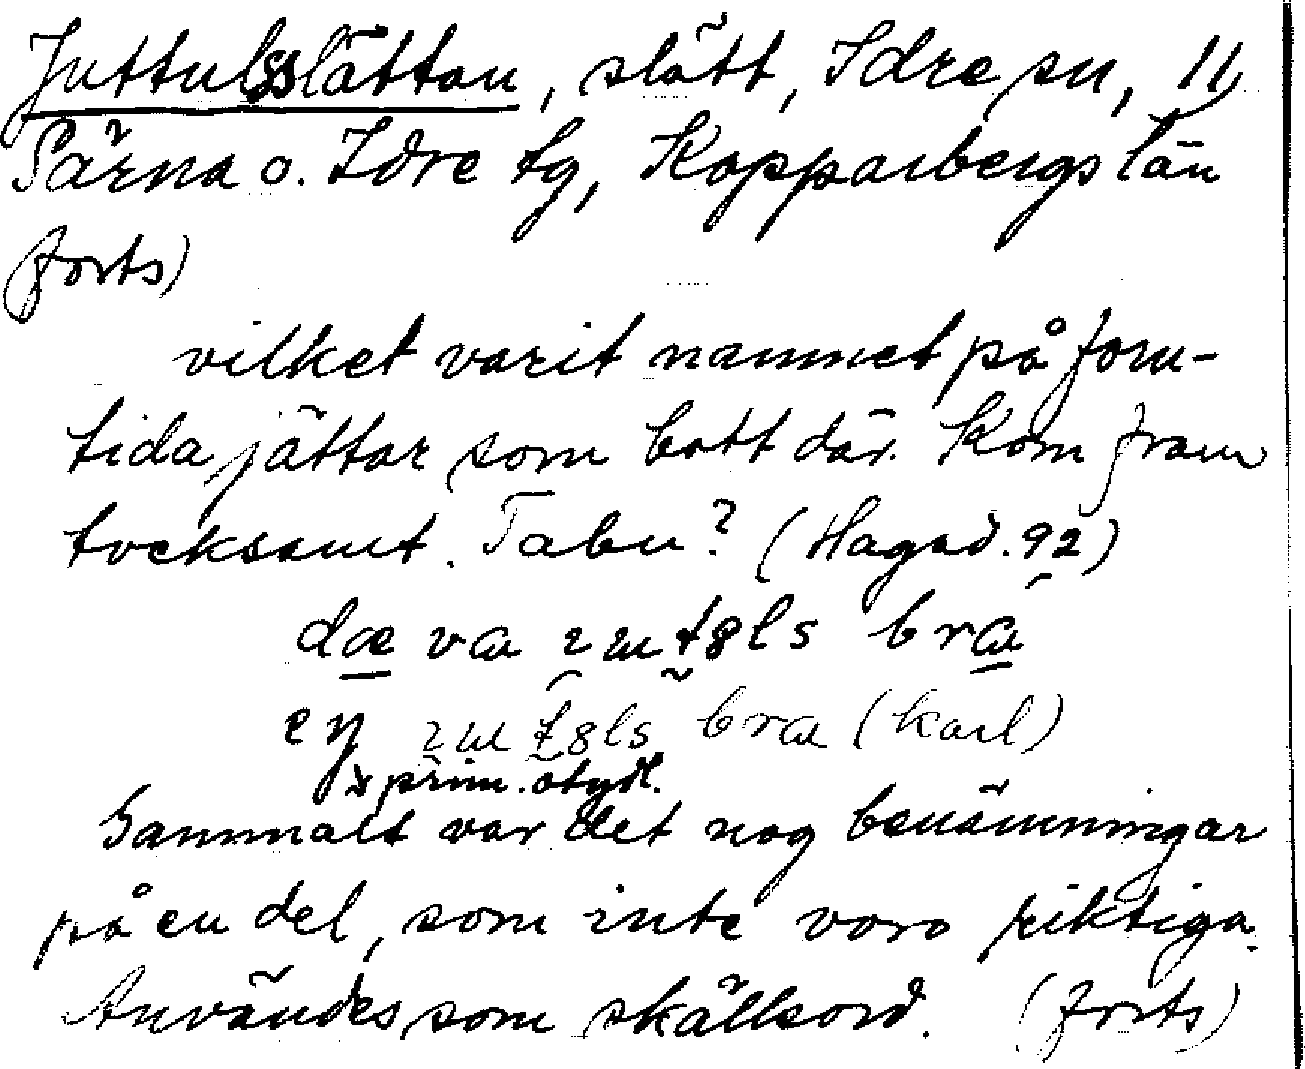 Juttulsslättan, slätt, Idre sn, 11
Särna o. Idre tg, Kopparbergs län
forts)
vilket varit namnet på forn-
tida jättar som bott där. Kom fram
tveksamt. Tabu? (Hagåd. 92)
dæ va bra
bra (karl)
prim. otydl.
Gammalt var det nog benämningar
på en del, som inte voro riktiga.
Användes som skällsord. (forts)